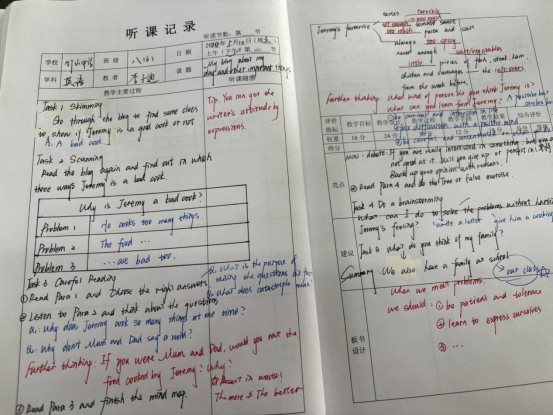 听课记录
听课节数：第 节
上午（下午）第 节
学校 班级 八(6) 日期
学科 英语 教者 课题 My blog about my
day and other important things
教学主要过程 听课随感
Task 1 Skimming
Go through the blog to find some clues
to show if Jeremy is a good cook or not
A: A bad cook
Tip: You can get the
writer's attitude by
expressions.
Task 2 Scanning
Read the blog again and find out in which
three ways Jeremy is a bad cook.
Why is Jeremy a bad cook?
Problem 1 He cooks too many things.
Problem 2 The food ...
Problem 3 ... are bad too.
Task 3 Careful Reading
① Read Para 1 and choose the right answers
② Listen to Para 2 and think about the questions
Q: What is the purpose of
asking the questions
Q: What does catastrophe mean?
Q1: Why does Jeremy cook so many things at one time?
Q2: Why don't Mum and Dad say a word?
Further thinking: If you were Mum and Dad, would you eat the
food cooked by Jeremy? Why?
③ Read Para 3 and finish the mind map.
Result in waste
The more The better
Jeremy's favourite
tastes terrible
not enough tomato sauce
too much pasta and
always too spicy
never enough salt/vegetables
little pieces of fish, steak, ham,
chicken and damages the
from the week before.
Further thinking: What kind of person do you think Jeremy is?
What can you learn from Jeremy?
评价指标 教学目标
权重 16分 24分
得分
亮点
Mini-debate: If you are really interested in something, but
not good at it. Will you give up or persist in it?
Back up your opinion with reasons.
④ Read Para 4 and do the True or False exercise.
Task 4 Do a brainstorming
What can I do to solve the problems without hurting
Jeremy's feeling?
write a letter give him a cooking
建议
Task 5 What do you think of my family?
Summary: We also have a family at school
our class
When we meet problems,
we should: ① be patient and tolerant
② learn to express ourselves
③ ...
板书设计